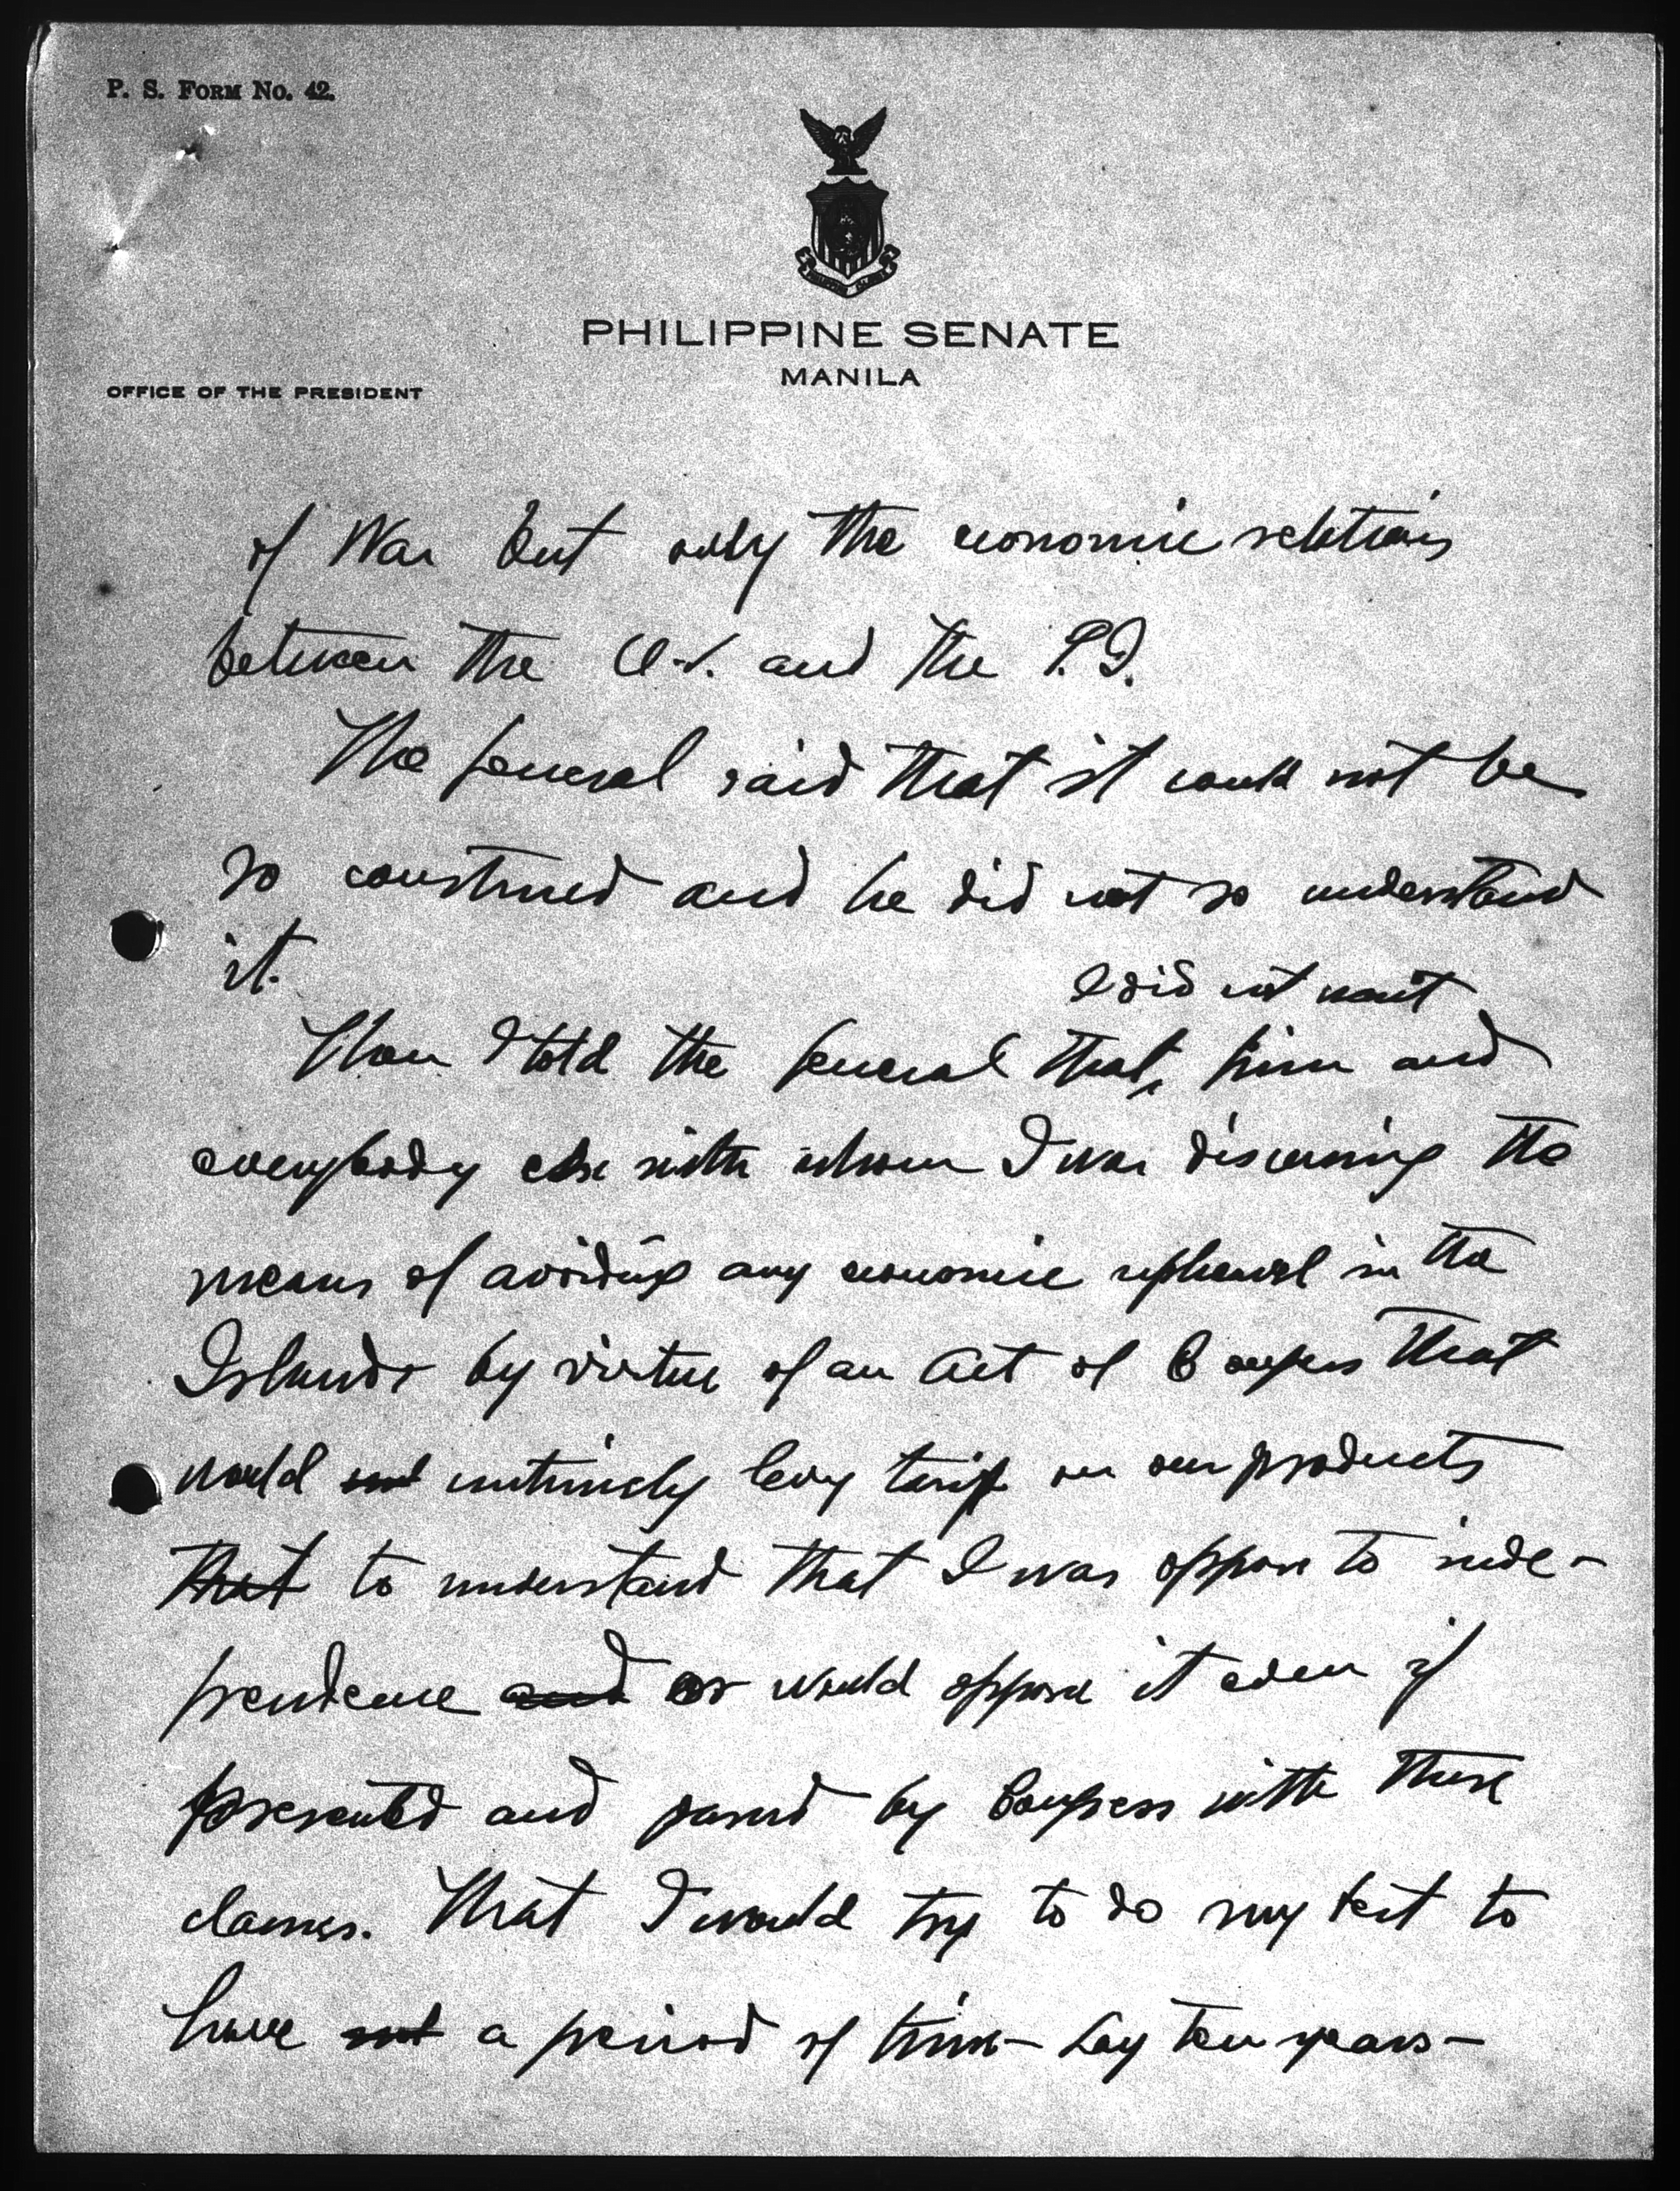 P. S. FORM No. 42.
PHILIPPINE SENATE
MANILA
OFFICE OF THE PRESIDENT
of War but only the economic relations
between the U.S. and the P.I.
The General said that it could not be
so construed and he did not so understand
it.
I did not want
Then I told the General that, him and
everybody else with whom I was discussing the
means of avoiding any economic upheaval in the
Islands by virtue of an Act of Congress that
would not levy tariff on our products
that to understand that I was oppose to inde-
pendence and or would oppose it even if
presented and passed by Congress with these
clauses. That I would try to do my best to
have not a period of time – say ten years –